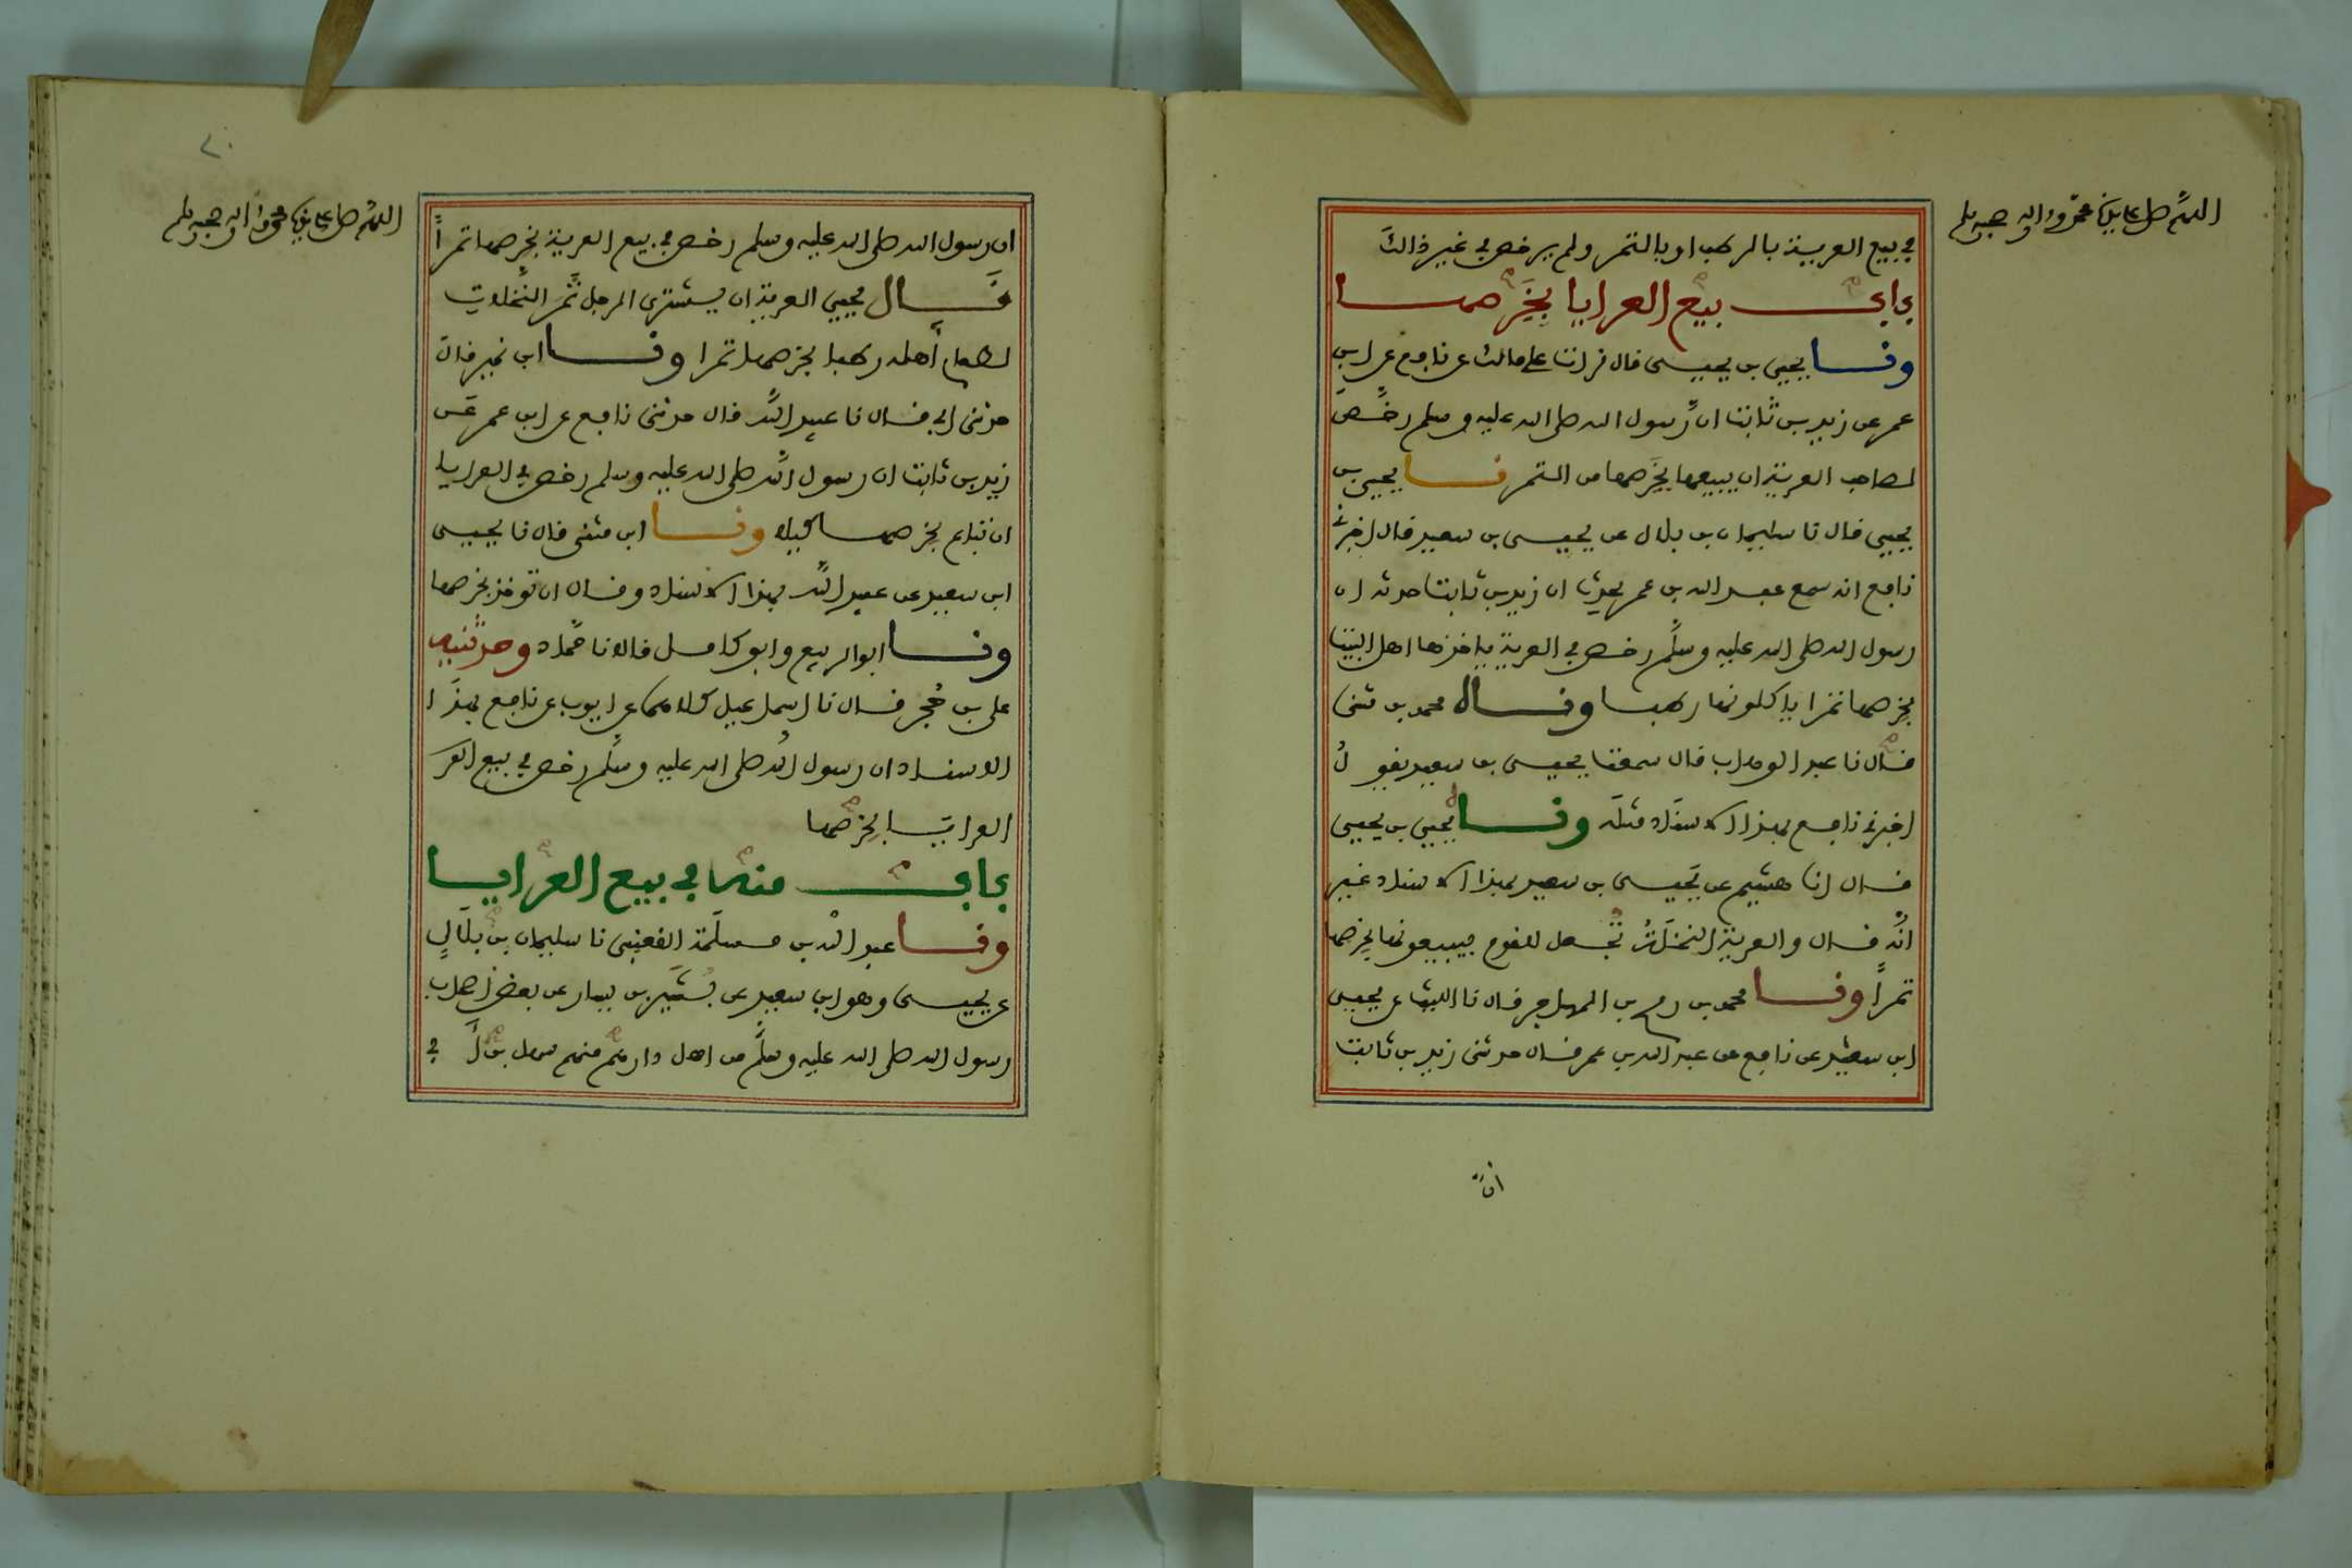 اللهم صل على سيدنا محمد وءاله وصحبه وسلم
في بيع العرية بالرطب او بالتمر ولم يرخص في غير ذالك
باب بيع العرايا بخرصها
ونا يحيى بن يحيى قال قرات على مالك عن نافع عن ابن
عمر عن زيد بن ثابت ان رسول الله صلى الله عليه وسلم رخص
لصاحب العرية ان يبيعها بخرصها من التمر نا يحيى بن
يحيى قال نا سليمان بن بلال عن يحيى بن سعيد قال اخبرني
نافع انه سمع عبد الله بن عمر يحدث ان زيد بن ثابت حدثه ان
رسول الله صلى الله عليه وسلم رخص في العرية ياخذها اهل البيت
بخرصها تمرا ياكلونها رطبا وقال محمد بن مثنى
قال نا عبد الوهاب قال سمعت يحيى بن سعيد يقول
اخبرني نافع بهذا الاسناد مثله ونا يحيى بن يحيى
قال انا هشيم عن يحيى بن سعيد بهذا الاسناد غير
انه قال والعرية النخلة تجعل للقوم فيبيعونها بخرصها
تمرا ونا محمد بن رمح بن المهاجر قال نا الليث عن يحيى
ابن سعيد عن نافع عن عبد الله بن عمر قال حدثنى زيد بن ثابت
ان
اللهم صل على سيدنا محمد وءاله وصحبه وسلم
ان رسول الله صلى الله عليه وسلم رخص في بيع العرية بخرصها تمرا
قال يحيى العرية ان يشترى الرجل ثمر النخلات
لطعام أهله رطبا بخرصها تمرا ونا ابن نمير قال
حدثنى ابي قال نا عبيد الله قال حدثنى نافع عن ابن عمر عن
زيد بن ثابت ان رسول الله صلى الله عليه وسلم رخص في العرايا
ان تباع بخرصها كيلا ونا ابن مثنى قال نا يحيى
ابن سعيد عن عبيد الله بهذا الاسناد وقال ان توخذ بخرصها
ونا ابو الربيع وابو كامل قالا نا حماد وحدثنيه
على بن حجر قال نا اسماعيل كلاهما عن ايوب عن نافع بهذا
الاسناد ان رسول الله صلى الله عليه وسلم رخص في بيع العر
العرايا بخرصها
باب منه في بيع العرايا
ونا عبد الله بن مسلمة القعنبى نا سليمان بن بلال
عن يحيى وهو ابن سعيد عن بشير بن يسار عن بعض اصحاب
رسول الله صلى الله عليه وسلم من اهل دارهم منهم سهل بن